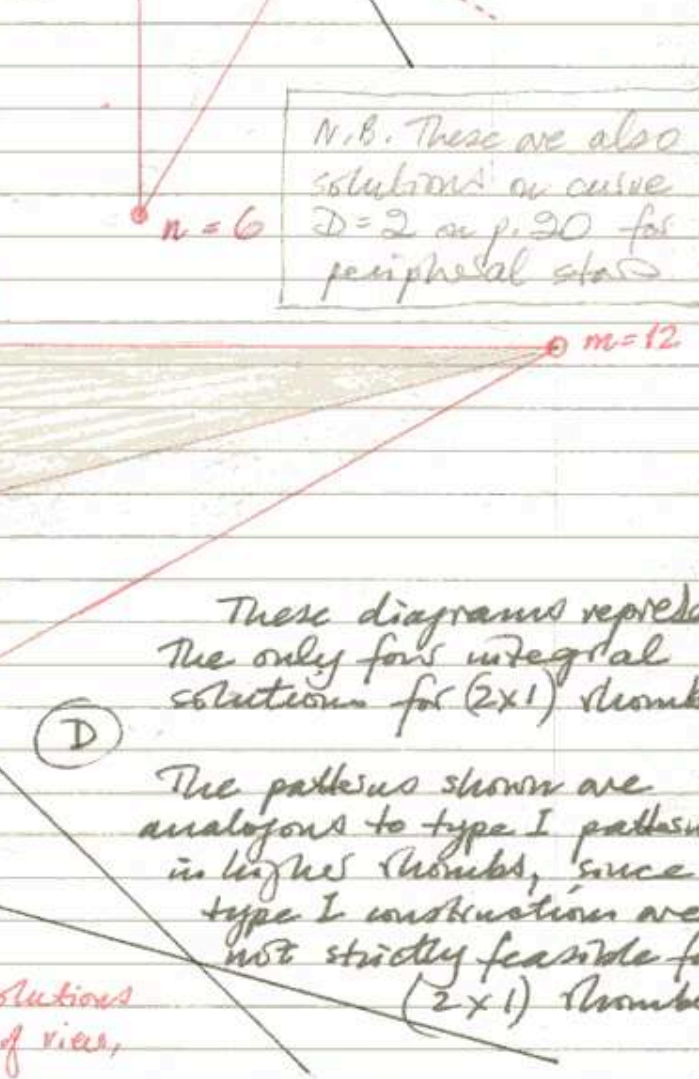 N.B. These are also
solutions on curve
D=2 on p.20 for
peripheral stars
n = 6
m=12
These diagrams repres
The only four integral
solutions for (2x1) rhomb
D
The patterns shown are
analogous to type I pattern
in higher rhombs, since
type I constructions are
not strictly feasible fo
(2x1) rhomb
olutions
of view,